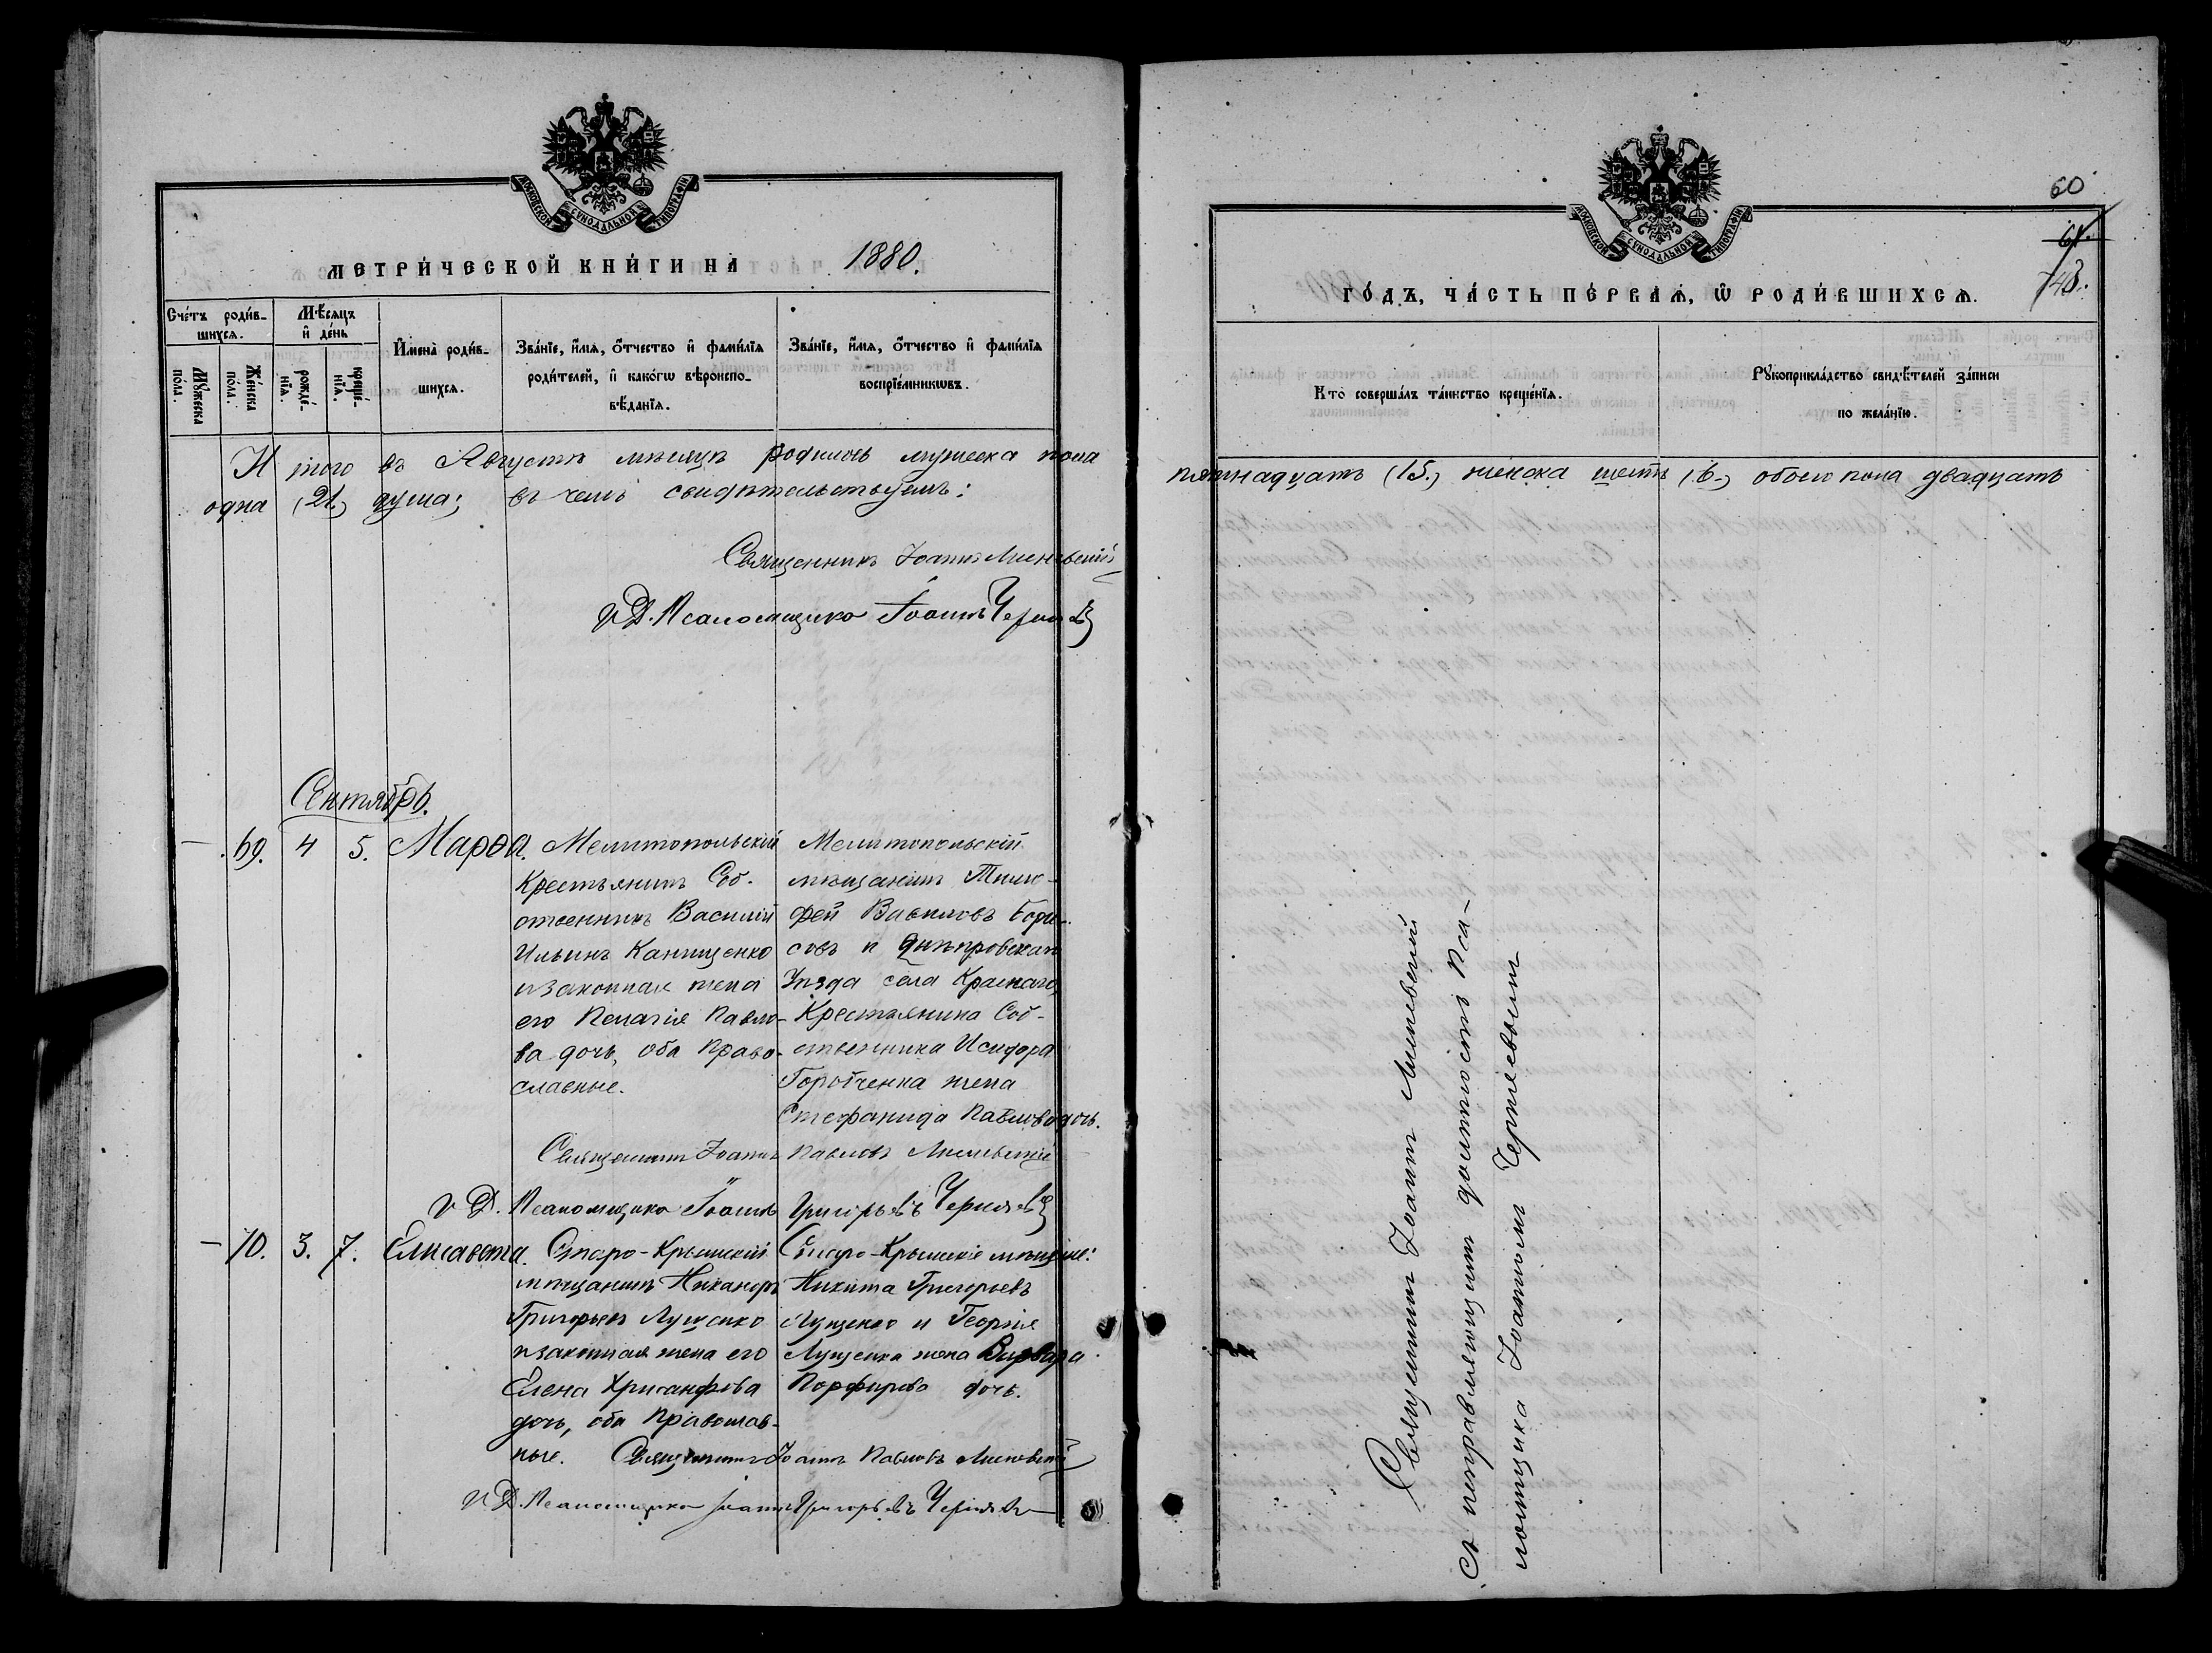 МОСКОВСКОЙ СѴНОДАЛЬНОЙ ТИПОГРАФІИ
МЕТРИ́ЧЕСКОЙ КНИ́ГИ НА 1880.
Сче́тъ роди́в-
шихся.
Мꙋ́жеска
по́ла.
Же́нска
по́ла.
Мѣ́сяцъ
и҆ де́нь
рожде́-
нїѧ.
креще́-
нїѧ.
И҆мена̀ роди́в-
шихсѧ.
Зва́нїе, и҆́мѧ, ѻ҆́тчество и҆ фами́лїѧ
роди́телей, и҆ како́гѡ вѣроиспо-
вѣ́данїѧ.
Зва́нїе, и҆́мѧ, ѻ҆́тчество и҆ фами́лїѧ
воспрїе́мникѡвъ.
И того въ Августѣ мѣсяцѣ родилось мужеска пола
одна (21.) душа; въ чемъ свидѣтельствуемъ:
Священникъ Іоаннъ
И.Д. Псаломщика Іоаннъ
Сентябрь.
— 69. 4 5. Марѳа.
Мелитопольскій
Крестьянинъ Соб-
ственникъ Василій
Ильинъ Канищенко
и законная жена
его Пелагія Павло-
ва дочь, оба Право-
славные.
Мелитопольскій
мѣщанинъ Тимо-
фей Вавиловъ Бори-
совъ и Днѣпровскаго
Уѣзда села
Крестьянина Соб-
ственника Исидора
жена
Стефанида Павлова дочь.
Священникъ Іоаннъ Павловъ
И.Д. Псаломщика Іоаннъ Григорьевъ
— 70. 3. 7. Елисавета.
Старо-Крымскій
мѣщанинъ Никаноръ
Григорьевъ Лущенко
и законная жена его
Елена Хрисанфова
дочь, оба Православ-
ные.
Старо-Крымскіе мѣщане:
Никита Григорьевъ
Лущенко и Георгія
Лущенка жена Варвара
Порфирова дочь.
Священникъ Іоаннъ Павловъ
И.Д. Псаломщика Іоаннъ Григорьевъ
МОСКОВСКОЙ СѴНОДАЛЬНОЙ ТИПОГРАФІИ
60
61.
ГО́ДЪ, ЧА́СТЬ ПЕ́РВАѦ, Ѽ РОДИ́ВШИХСѦ.
Кто̀ соверша́лъ та́инство креще́нїѧ.
Рꙋкоприкла́дство свидѣ́телей за́писи
по жела́нїю.
пятнадцать (15.) женска шесть (6.) обоего пола двадцать
Священникъ Іоаннъ
съ исправляющимъ должность Пса-
ломщика Іоанномъ